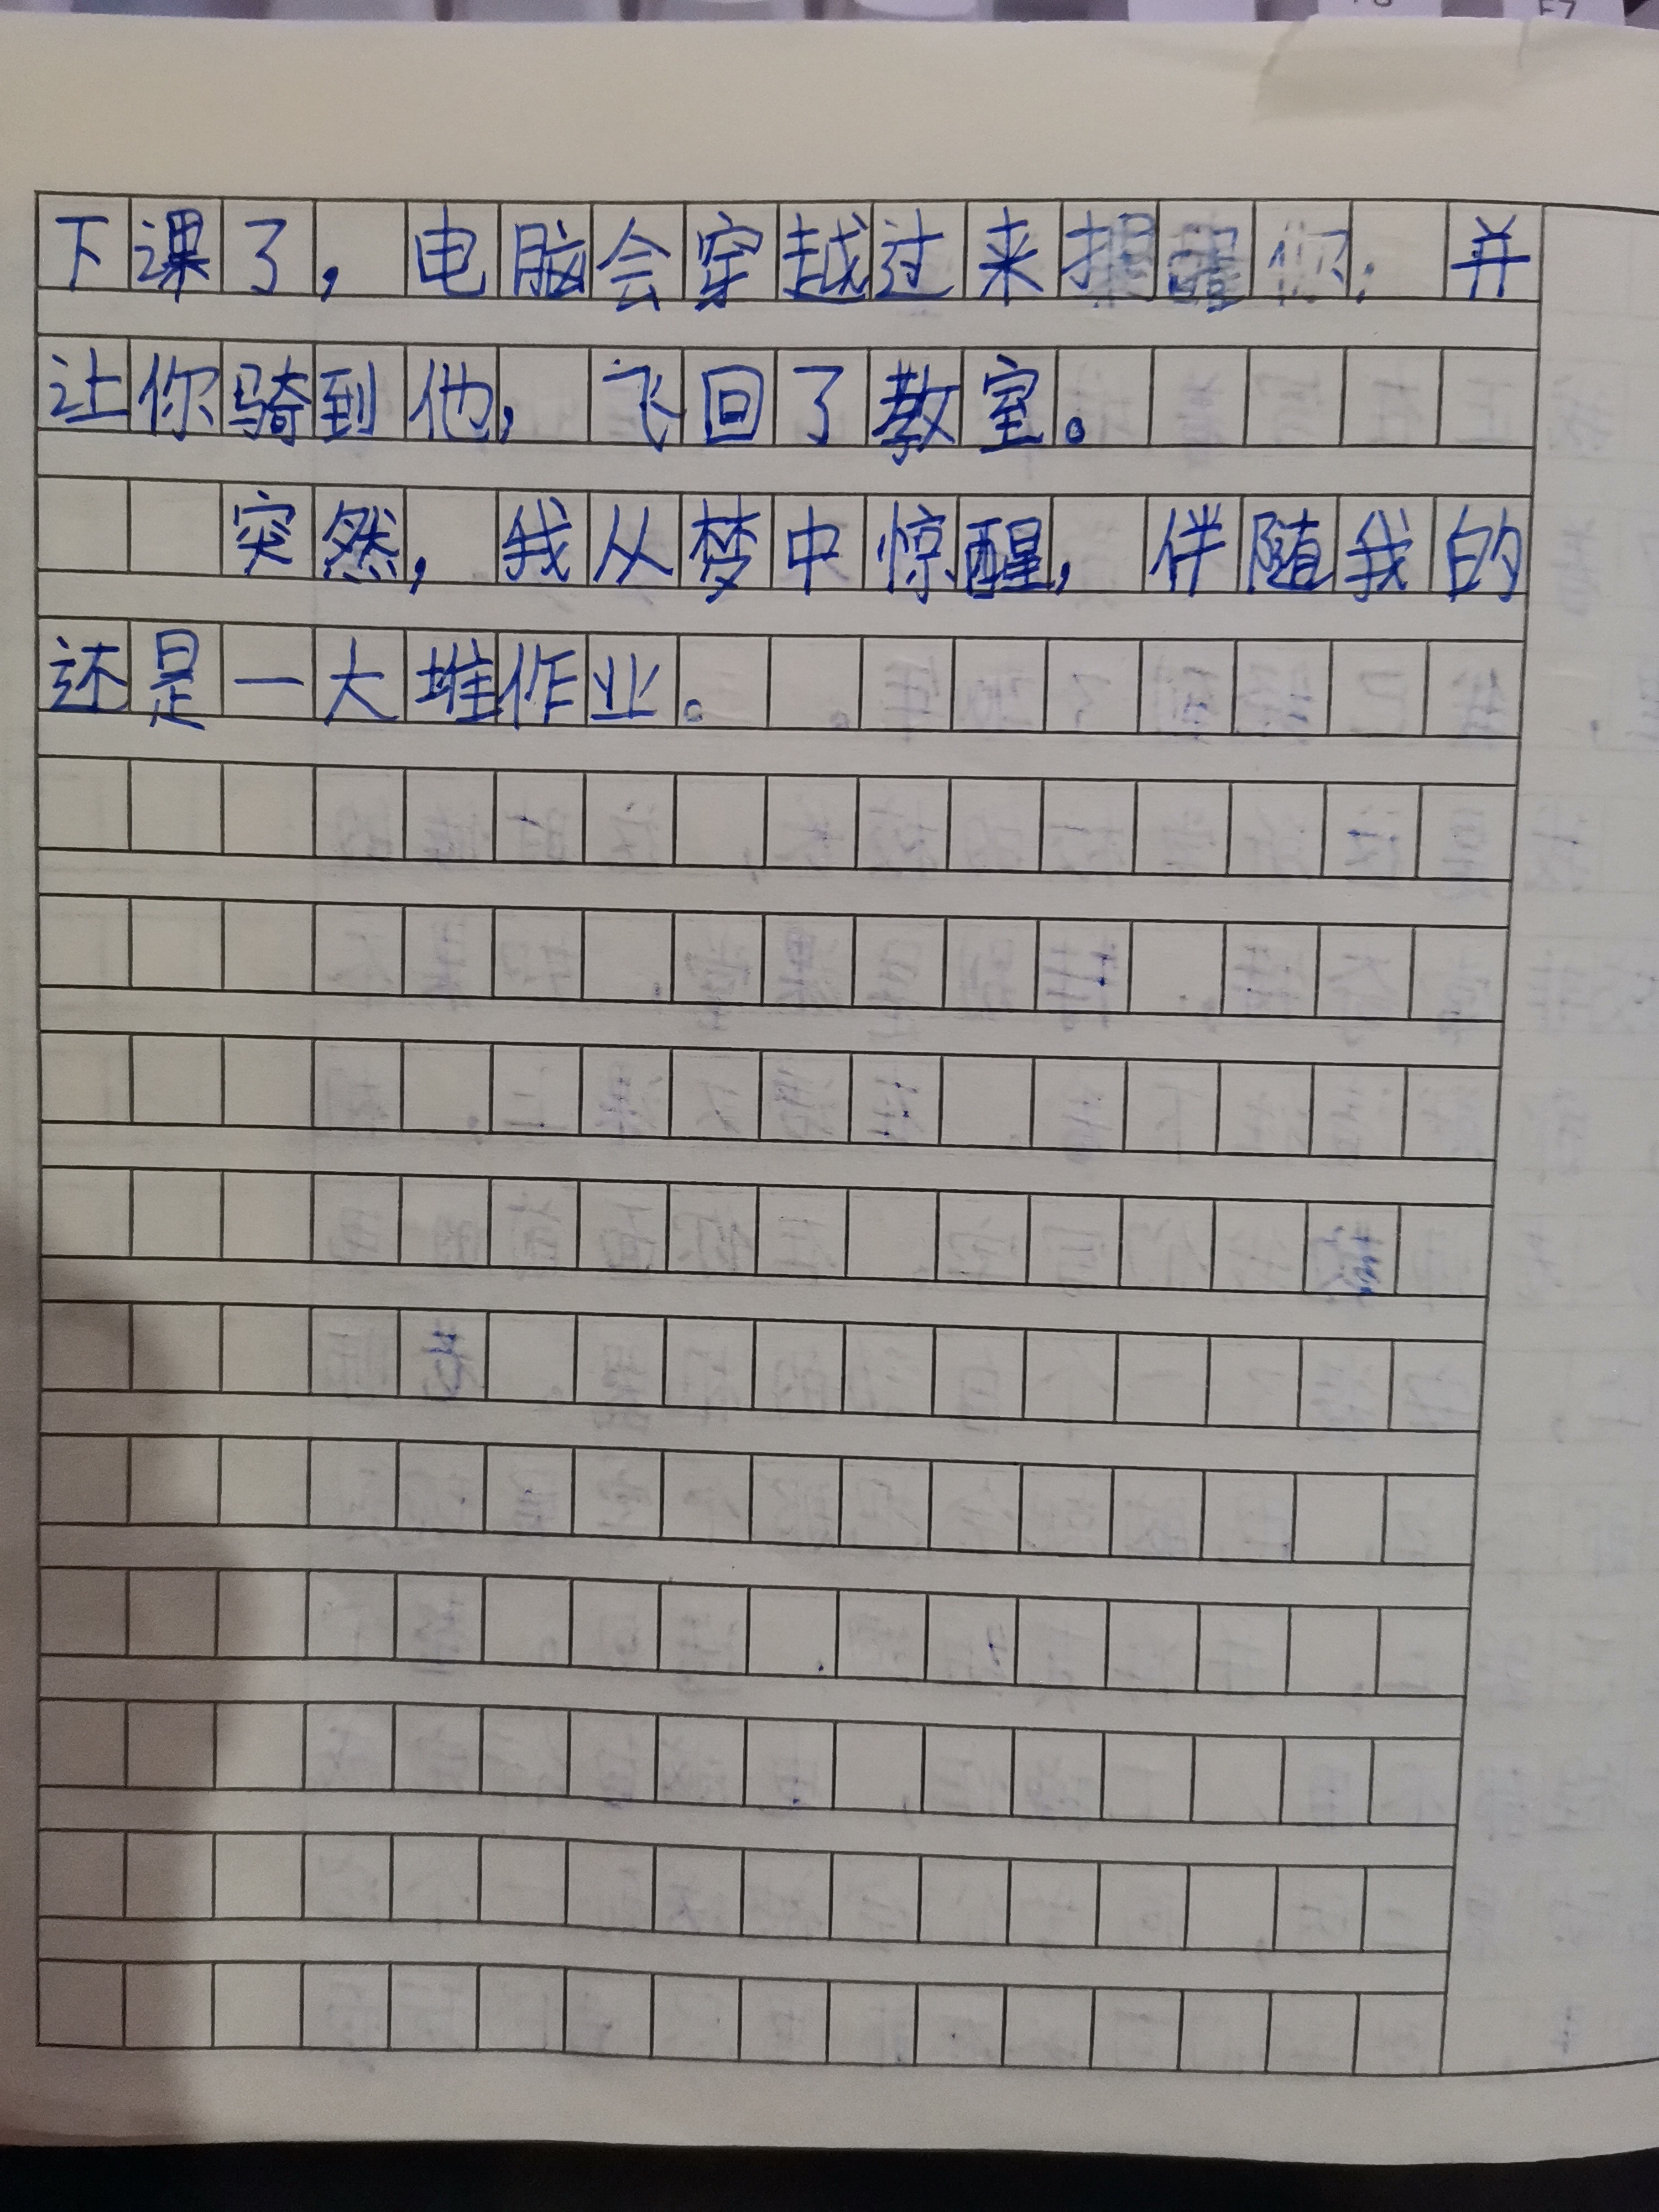 下课了，电脑会穿越过来提醒你，并
让你骑到他，飞回了教室。
突然，我从梦中惊醒，伴随我的
还是一大堆作业。